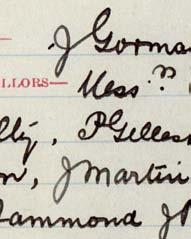 J Gorma
LLORS— Mess rs
lly, P Gilles
n, J Martin
Hammond J P